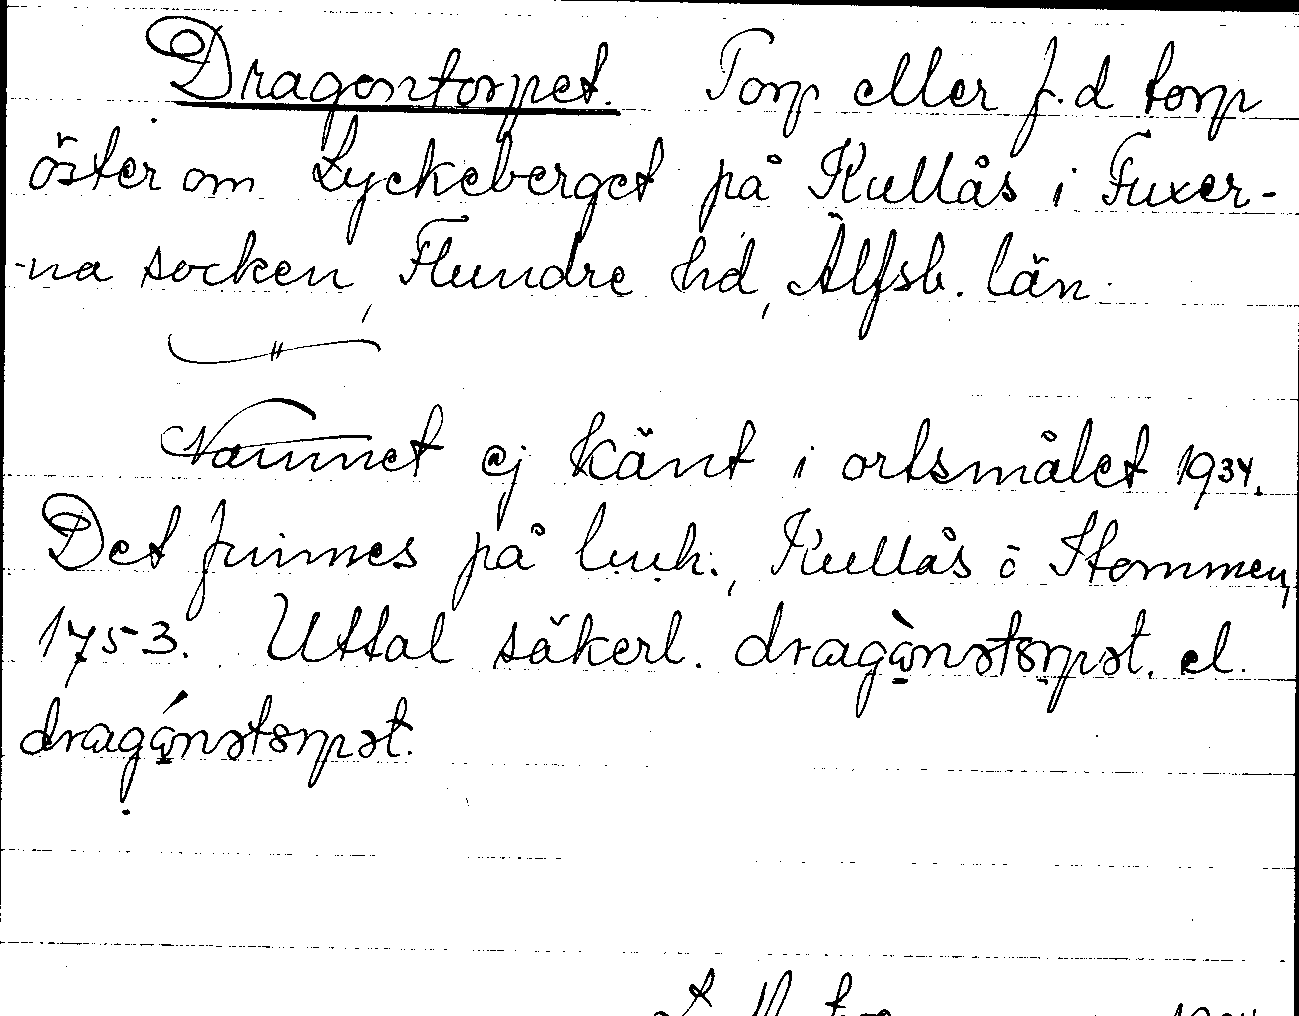 Dragontorpet. Torp eller f.d torp
öster om Lyckeberget på Kullås i Fuxer-
-na socken, Flundre hd, Älfsb. län.
Namnet ej känt i ortsmålet 1934.
Det finnes på lmk., Kullås ö Stommen,
1753. Uttal säkerl. dragὼnətorpət. el.
dragώnətorpət.